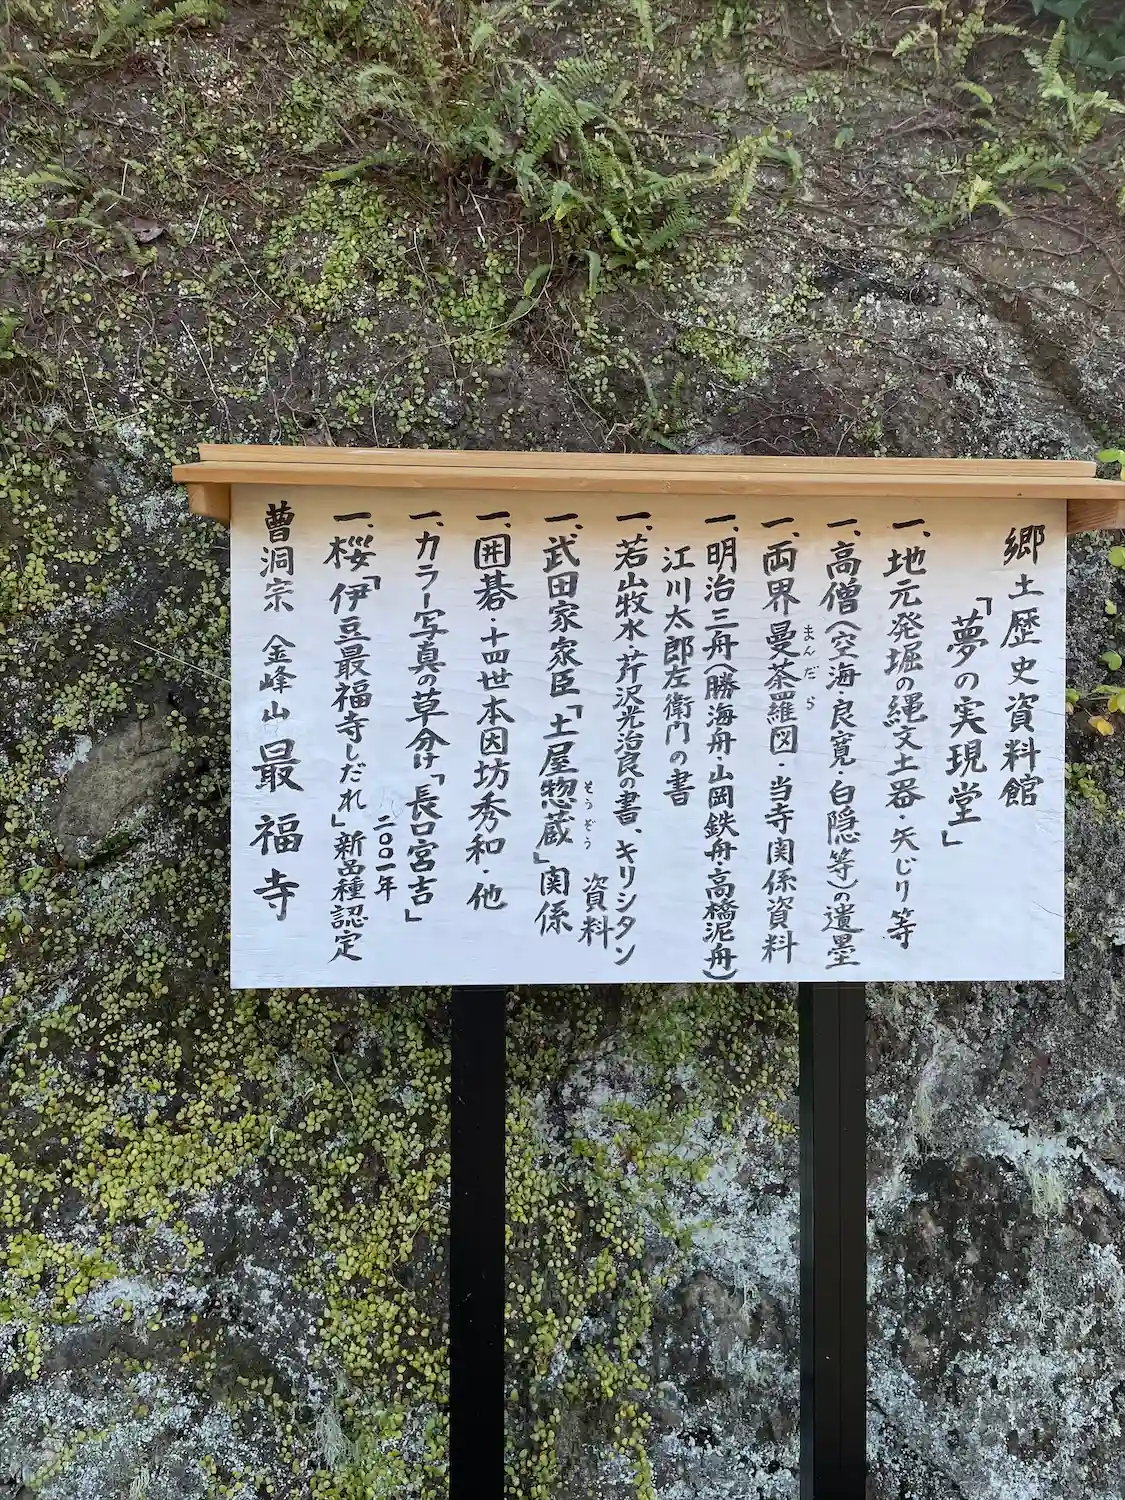 郷土歴史資料館
「夢の実現堂」
一、地元発堀の縄文土器・矢じり等
一、高僧(空海・良寛・白隠等)の遺墨
一、両界曼荼羅図・当寺関係資料
まんだら
一、明治三舟(勝海舟・山岡鉄舟・高橋泥舟)
江川太郎左衛門の書
一、若山牧水・芹沢光治良の書、キリシタン
資料
一、武田家家臣「土屋惣蔵」関係
そうぞう
一、囲碁・十四世本因坊秀和・他
一、カラー写真の草分け「長口宮吉」
二〇〇一年
一、桜「伊豆最福寺しだれ」新品種認定
曹洞宗 金峰山 最福寺